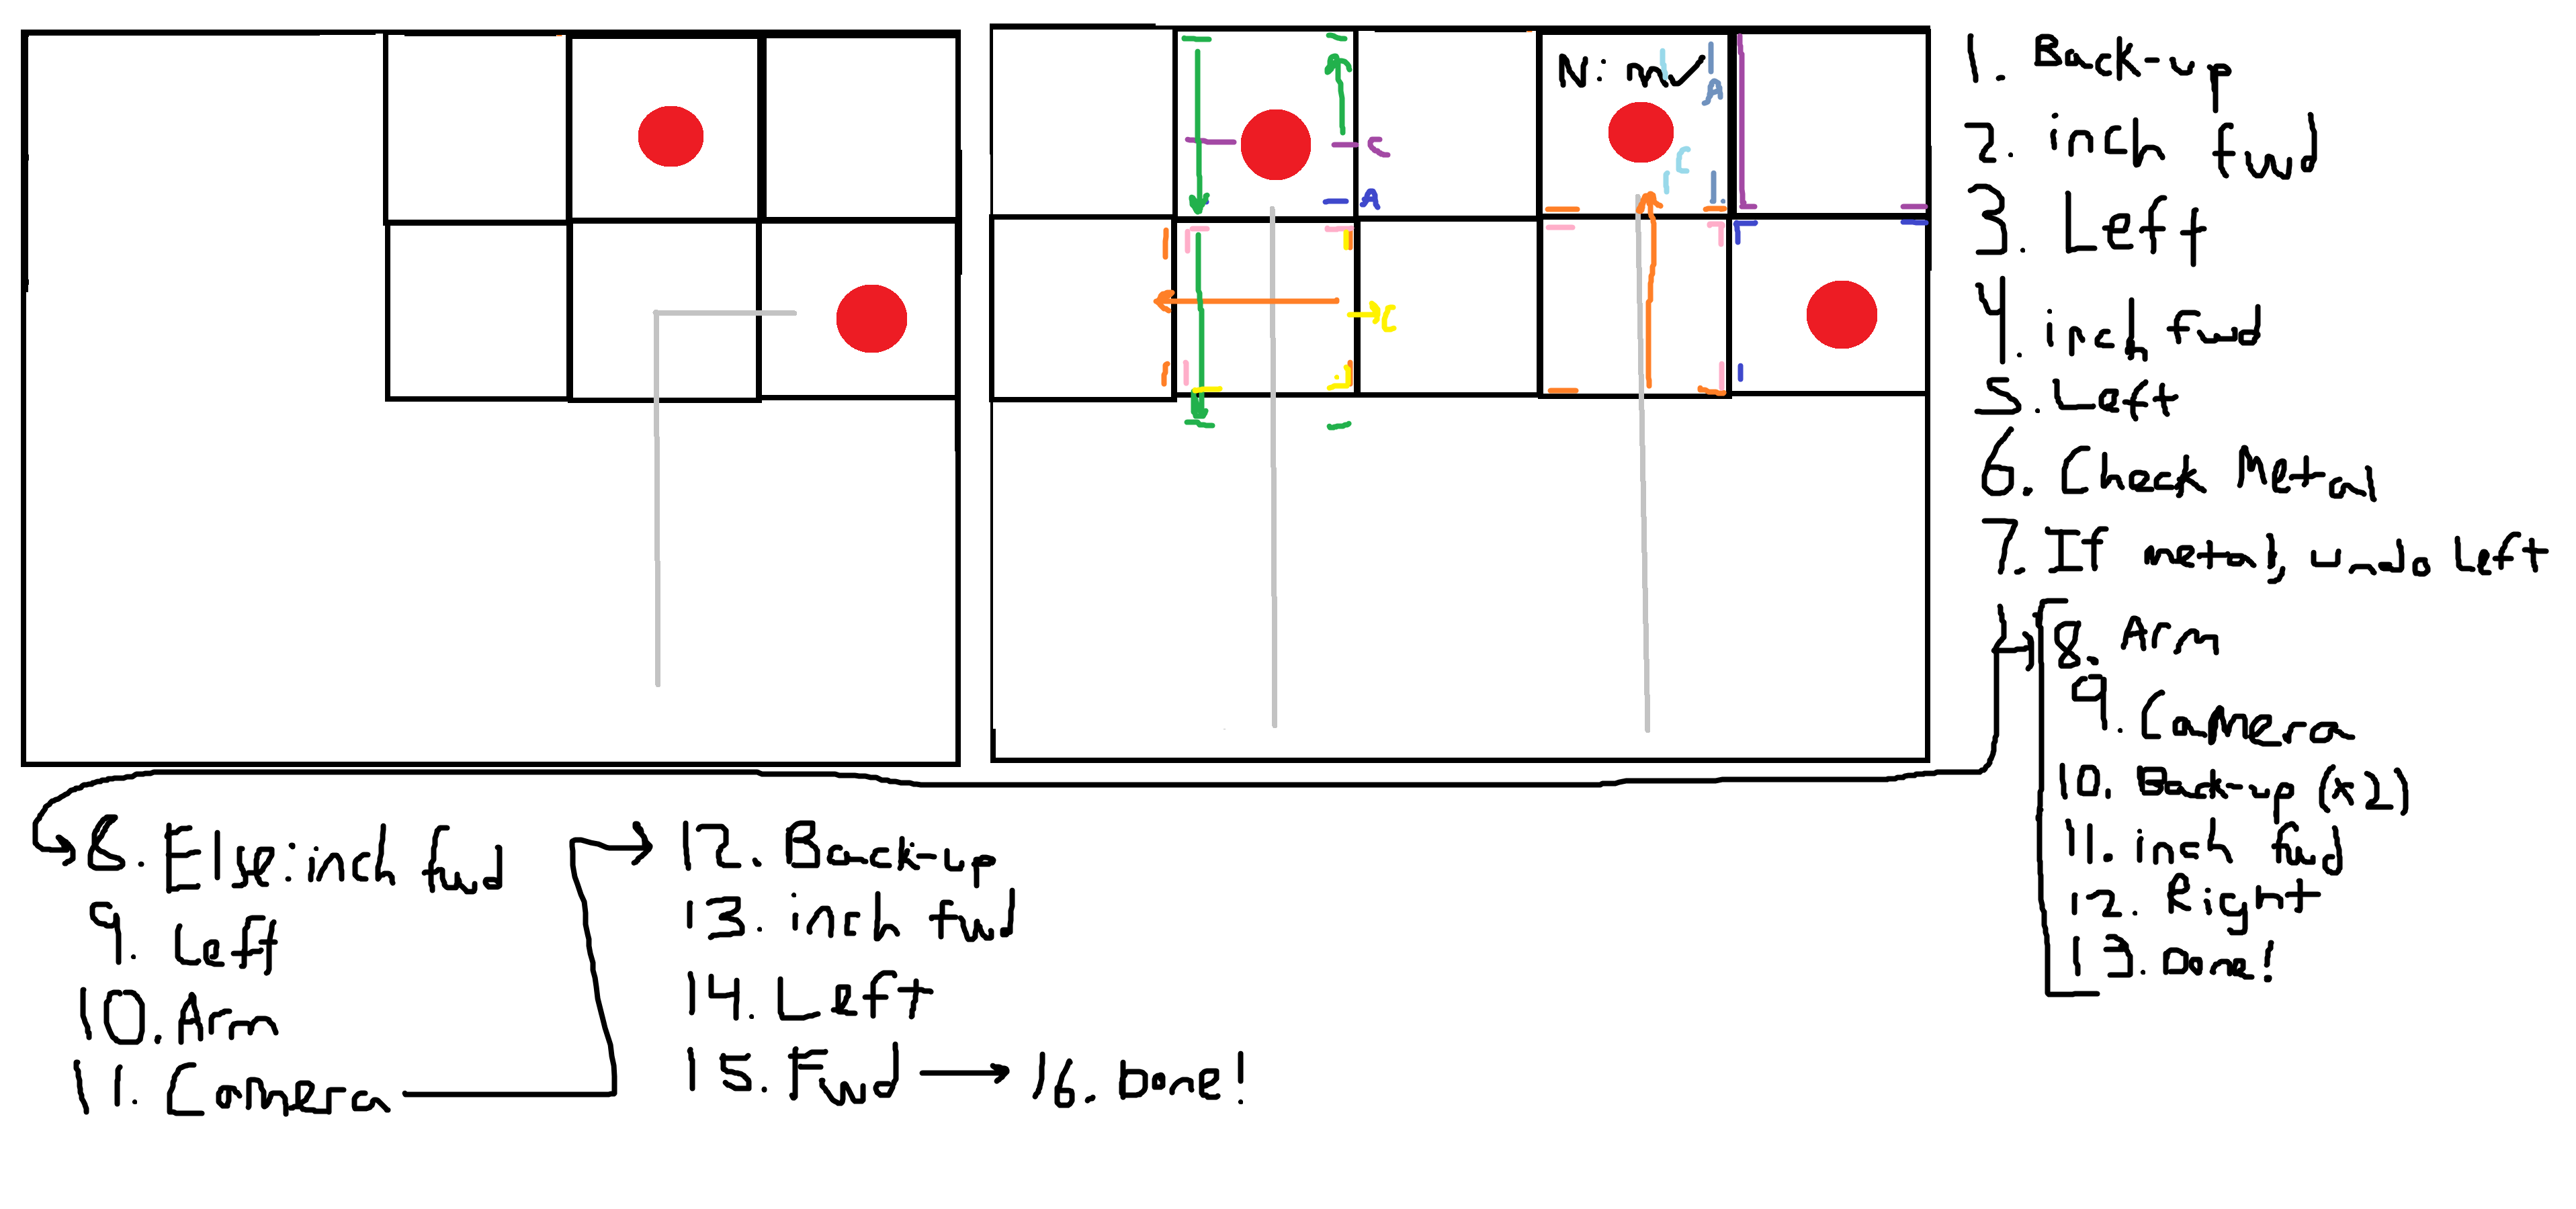 N: m✓
A
C
C
A
C
1. Back-up
2. inch fwd
3. Left
4. inch fwd
5. Left
6. Check Metal
7. If metal, undo Left
8. Arm
9. Camera
10. Back-up (x2)
11. inch fwd
12. Right
13. Done!
8. Else: inch fwd
9. Left
10. Arm
11. Camera
12. Back-up
13. inch fwd
14. Left
15. Fwd → 16. Done!